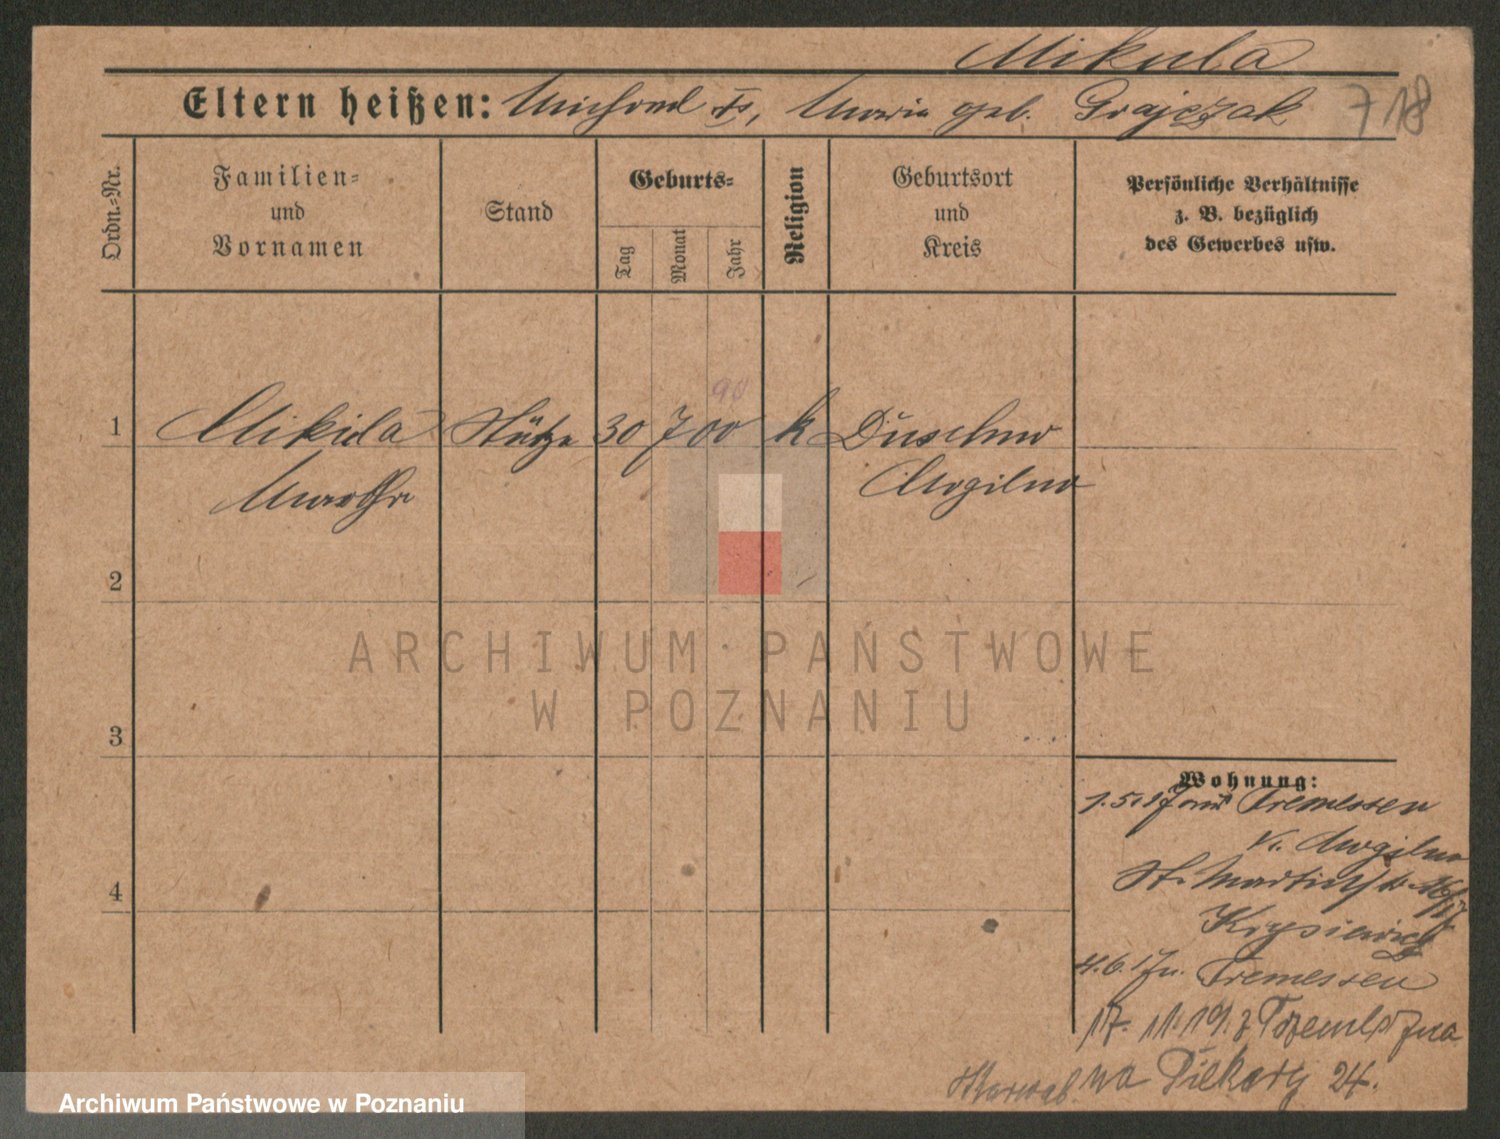 Mikula
Eltern heißen: Michael †, Maria geb. Grajczak 718
Ordn.-Nr.
Familien- und Vornamen
Stand
Geburts-
Tag Monat Jahr
Religion
Geburtsort und Kreis
Persönliche Verhältnisse
z. B. bezüglich
des Gewerbes usw.
90
1 Mikula Stütze 30 7 00 k Duschno
Martha Mogilno
2
ARCHIWUM PAŃSTWOWE
W POZNANIU
3
Wohnung:
1.5.17 aus Tremessen
K. Mogilno
St. Martinstr.
Krysiewicz
4
4.6.17 n. Tremessen
17.11.19. z Trzemeszna
na Piekary 24.
Archiwum Państwowe w Poznaniu